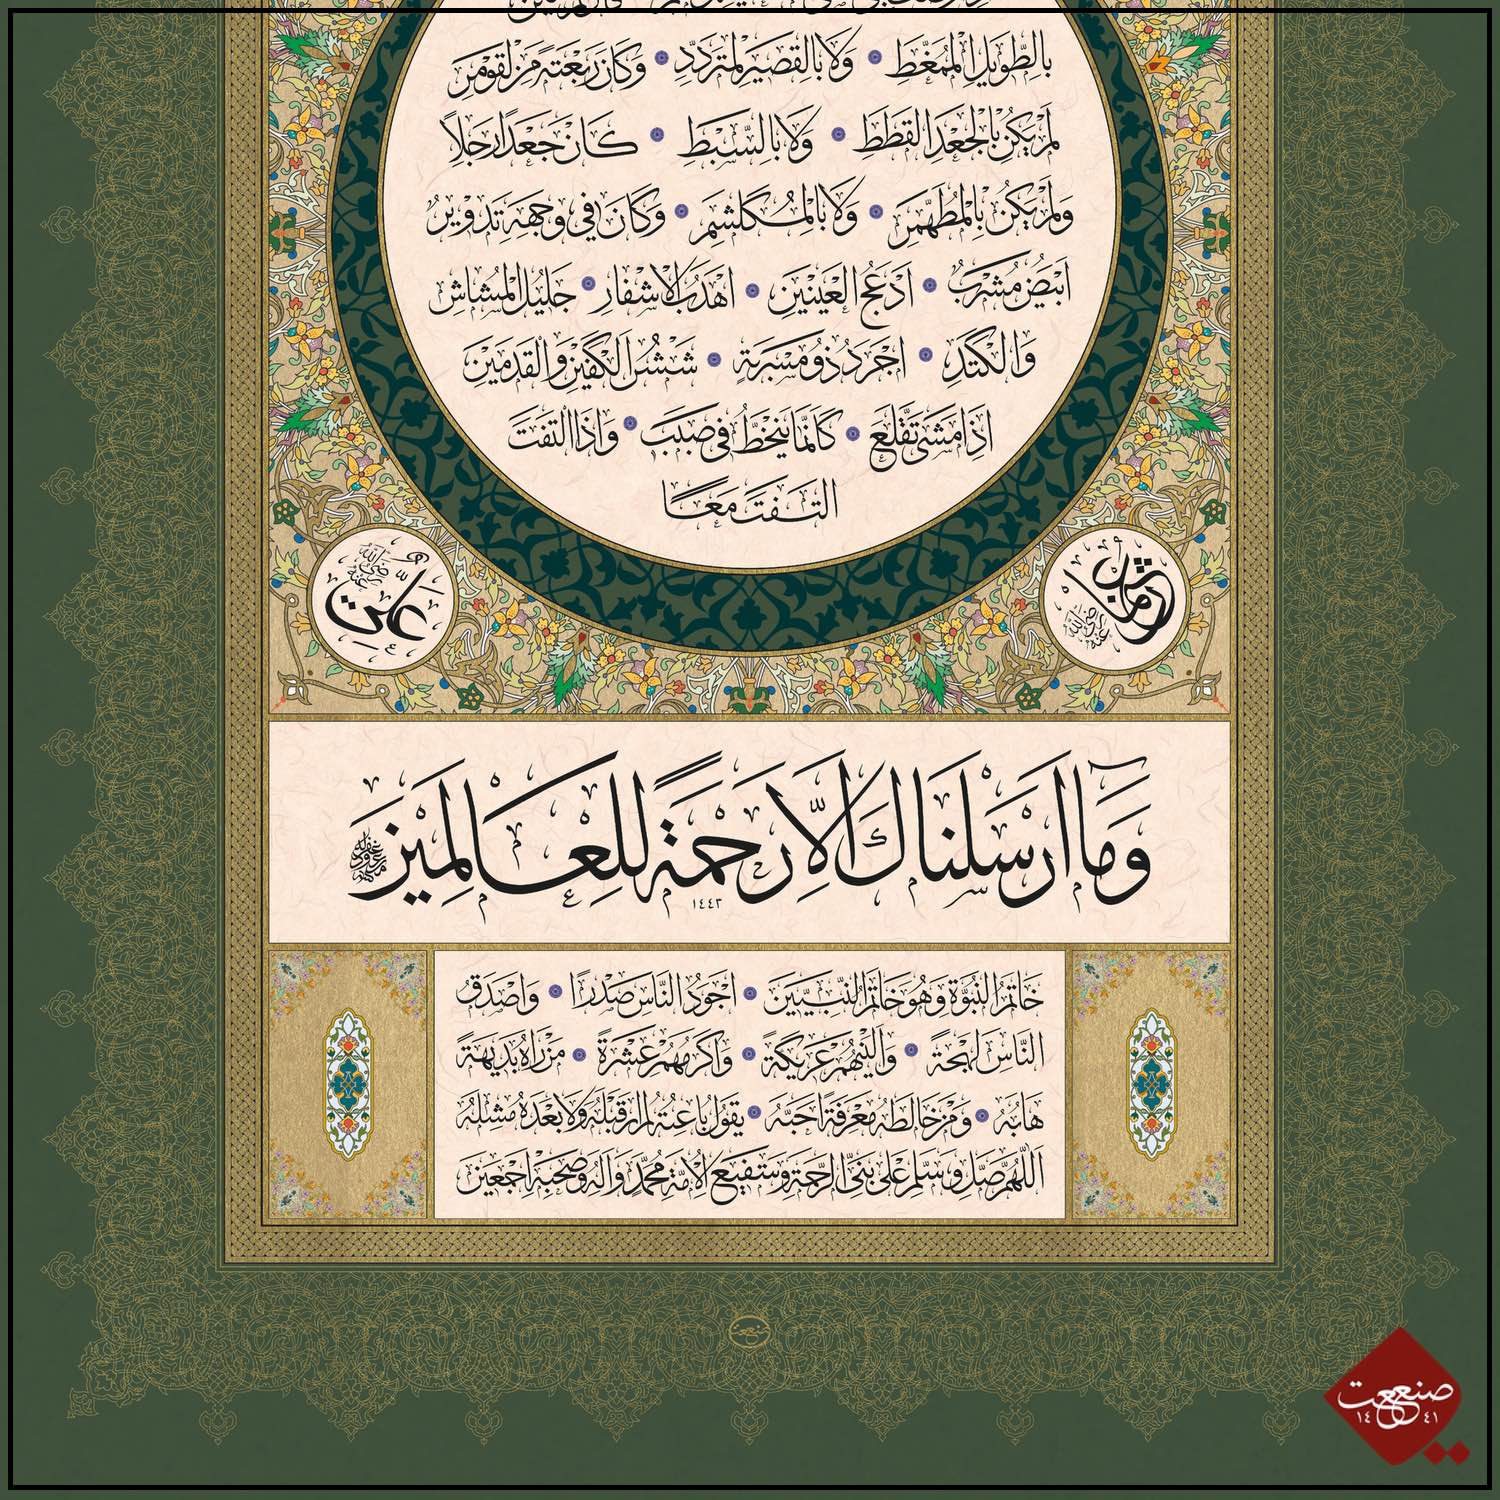 بِالطَّوِيلِ الْمُمَّغَطِ وَلَا بِالْقَصِيرِ الْمُتَرَدِّدِ وَكَانَ رَبْعَةً مِنَ الْقَوْمِ
لَمْ يَكُنْ بِالْجَعْدِ الْقَطَطِ وَلَا بِالسَّبْطِ كَانَ جَعْدًا رَجِلًا
وَلَمْ يَكُنْ بِالْمُطَهَّمِ وَلَا بِالْمُكَلْثَمِ وَكَانَ فِي وَجْهِهِ تَدْوِيرٌ
اَبْيَضُ مُشْرَبٌ اَدْعَجُ الْعَيْنَيْنِ اَهْدَبُ الْاَشْفَارِ جَلِيلُ الْمُشَاشِ
وَالْكَتَدِ اَجْرَدُ ذُو مَسْرُبَةٍ شَثْنُ الْكَفَّيْنِ وَالْقَدَمَيْنِ
اِذَا مَشَى تَقَلَّعَ كَاَنَّمَا يَنْحَطُّ فِي صَبَبٍ وَاِذَا الْتَفَتَ
الْتَفَتَ مَعًا
عثمان رضي الله عنه
علي رضي الله عنه
وَمَآ اَرْسَلْنَاكَ اِلَّا رَحْمَةً لِلْعَالَمِينَ
١٤٤٣
خَاتَمُ النُّبُوَّةِ وَهُوَ خَاتَمُ النَّبِيِّينَ اَجْوَدُ النَّاسِ صَدْرًا وَاَصْدَقُ
النَّاسِ لَهْجَةً وَاَلْيَنُهُمْ عَرِيكَةً وَاَكْرَمُهُمْ عِشْرَةً مَنْ رَاٰهُ بَدِيهَةً
هَابَهُ وَمَنْ خَالَطَهُ مَعْرِفَةً اَحَبَّهُ يَقُولُ نَاعِتُهُ لَمْ اَرَ قَبْلَهُ وَلَا بَعْدَهُ مِثْلَهُ
اَللّٰهُمَّ صَلِّ وَسَلِّمْ عَلَى نَبِيِّ الرَّحْمَةِ وَشَفِيعِ الْاُمَّةِ مُحَمَّدٍ وَاٰلِهِ وَصَحْبِهِ اَجْمَعِينَ
صنعت
صنعت
١٤ ٤١